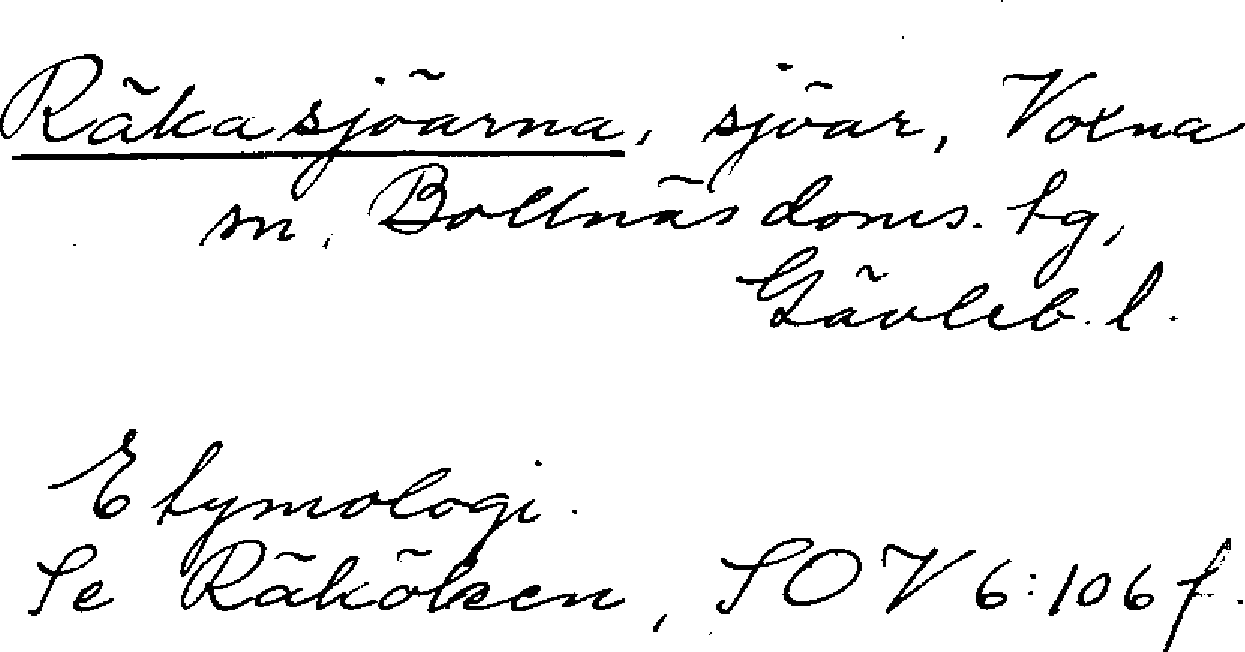 Räkasjöarna, sjöar, Voxna
sn, Bollnäs doms. tg,
Gävleb. l.
Etymologi.
Se Räköken, SOV 6:106 f.